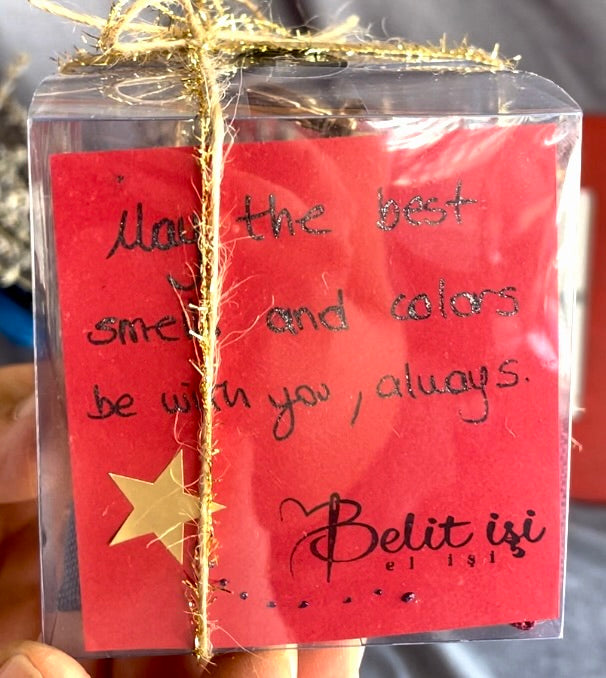 May the best
smells and colors
be with you, always.
Belit işi
el işi